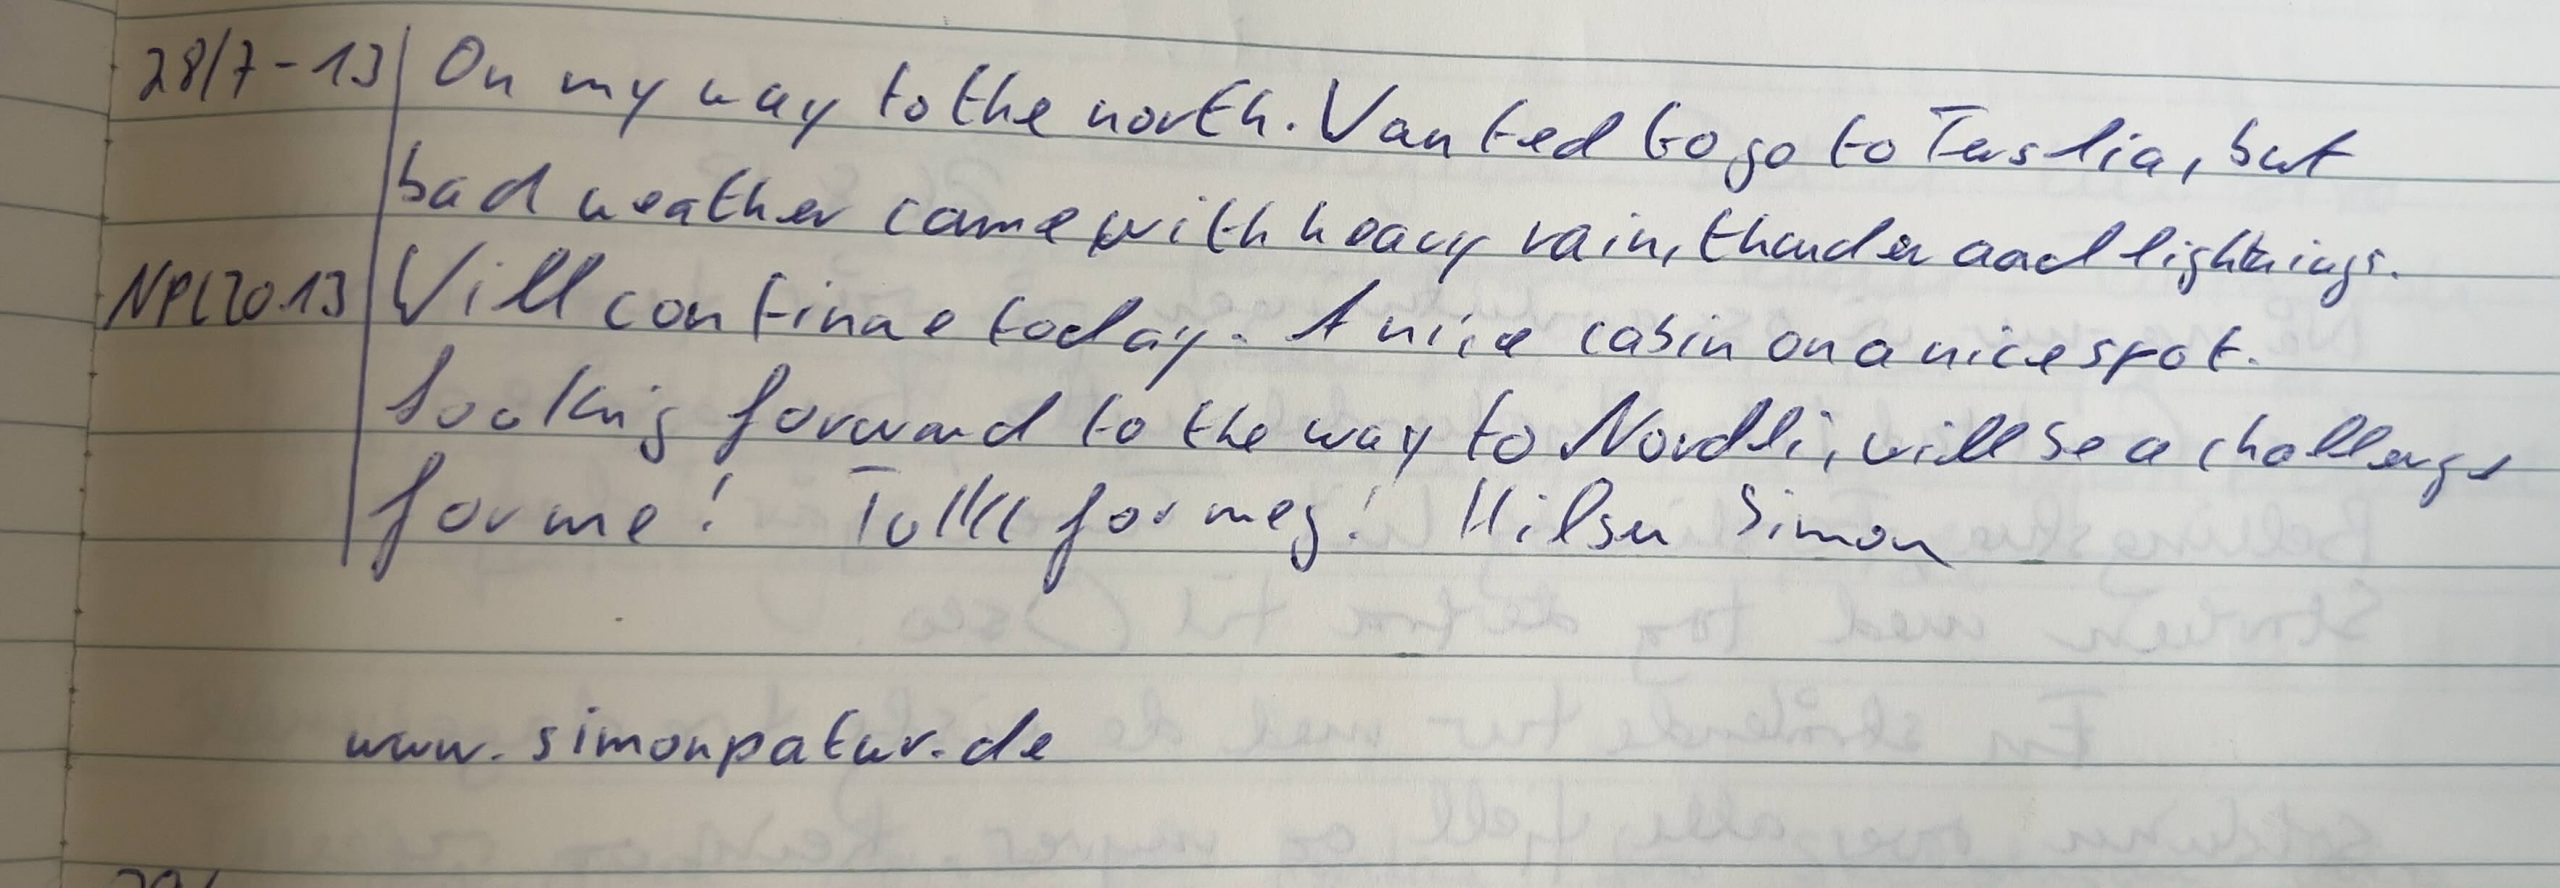 28/7-13 On my way to the north. Vanted to go to Terslia, but
bad weather came with heavy rain, thunder and lightnings.
NPL2013 Will continue today. A nice cabin on a nice spot.
Looking forward to the way to Nordli, will be a challenge
for me! Takk for meg! Hilsen Simon
www.simonpatur.de
29/